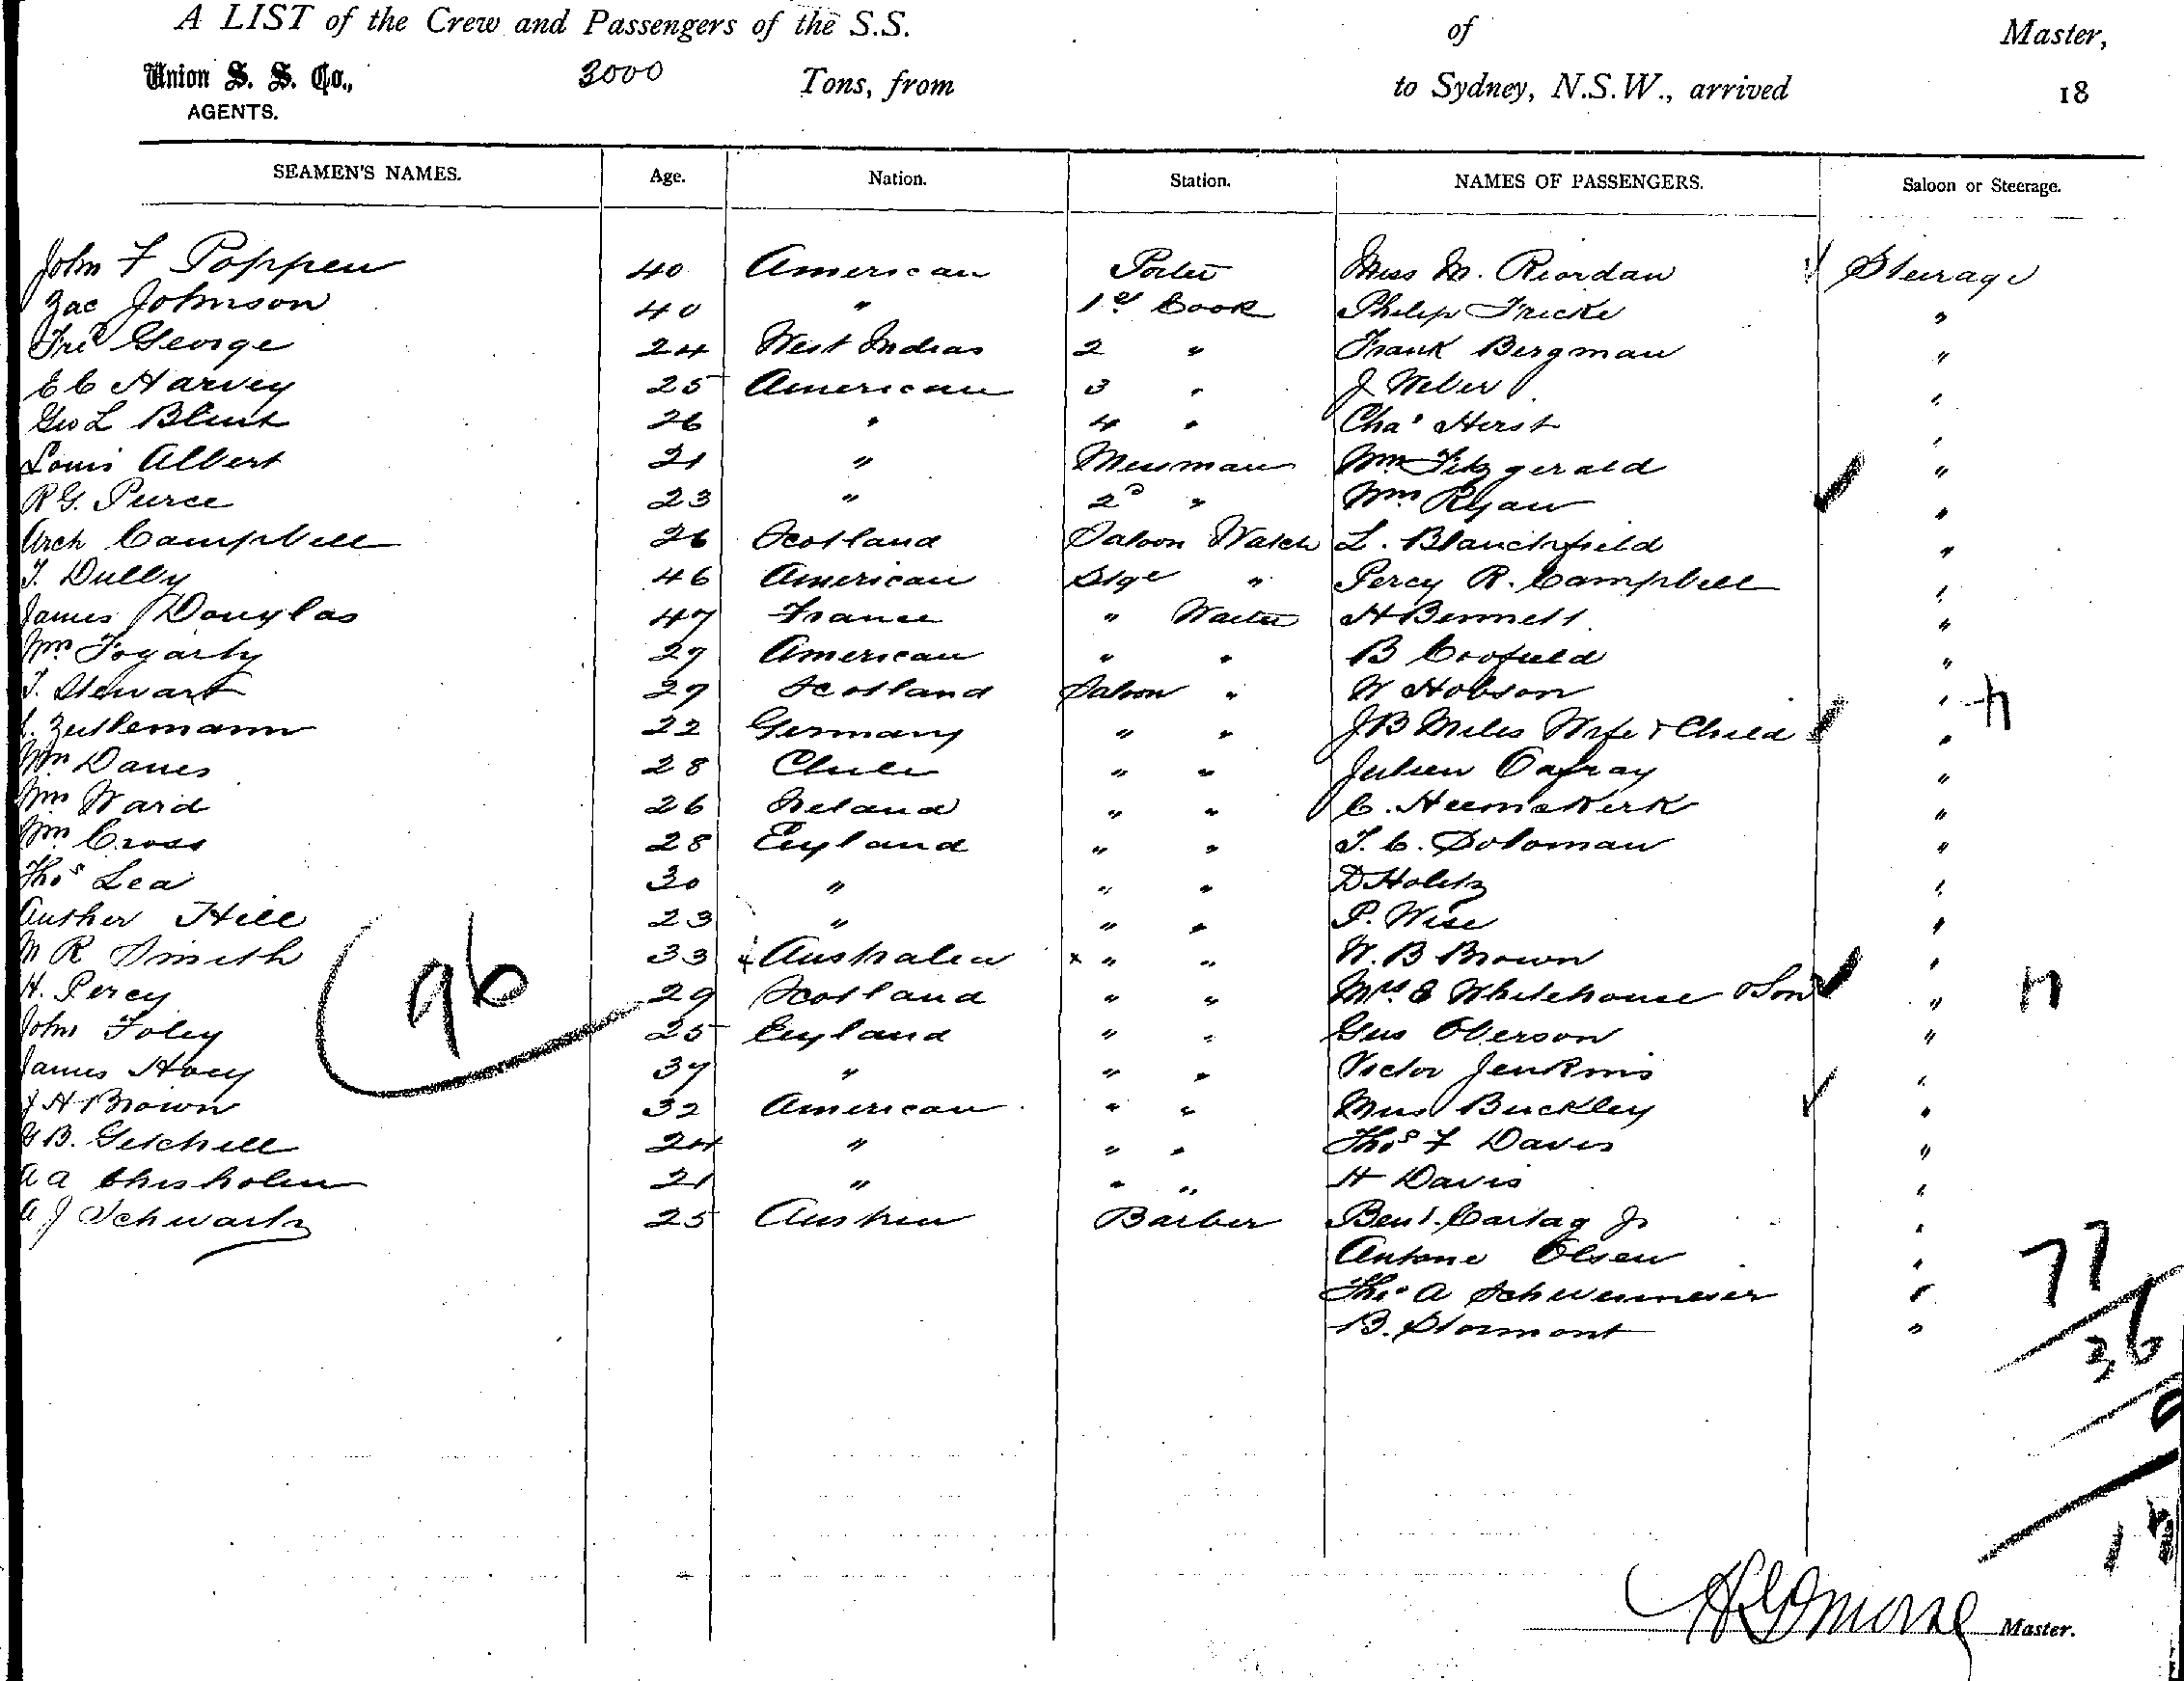 A LIST of the Crew and Passengers of the S.S. of Master,
Union S. S. Co., 3000 Tons, from to Sydney, N.S.W., arrived 18
AGENTS.
SEAMEN'S NAMES. Age. Nation. Station. NAMES OF PASSENGERS. Saloon or Steerage.
John F Poppen 40 American Porter Miss M. Riordan ✓ Steerage
Zac Johnson 40 " 1st Cook Philip Fricke "
Fred George 24 West Indias 2 " Frank Bergman "
E C Harvey 25 American 3 " J Weber "
Geo L Blunt 26 " 4 " Chas Herst "
Louis Albert 21 " Messman Wm Fitzgerald "
R G. Pierce 23 " 2d " Wm Ryan ✓ "
Arch Campbell 26 Scotland Saloon Watch L. Blanchfield "
T. Dully 46 American Stge " Percy R. Campbell "
James Douglas 47 France " Waiter H Bennett "
Wm Fogarty 27 American " " B Crofield "
T. Stewart 29 Scotland Saloon " W Hobson "
Zeittlemann 22 Germany " " J B Miles Wife & Child ✓ " 4
Wm Davies 28 Chile " " Julien Cafray "
Wm Ward 26 Ireland " " C. Heemskerk "
Wm Cross 28 England " " T. C. Soloman "
Thos Lea 30 " " " D Holtz "
Auther Hill 23 " " " P. Wise "
W R Smith 33 x Australia x " " W. B Brown "
H. Percy 29 Scotland " " Mrs E Whitehouse & Son ✓ "
96
John Foley 25 England " " Gus Oberson "
James Hoey 37 " " " Victor Jenkins "
J H Brown 32 American " " Miss Buckley ✓ "
G B. Getchell 24 " " " Thos F Davis "
A A Chisholm 21 " " " H Davis "
A J Schwartz 25 Austria Barber Benj. Cartag Jr "
Antone Olsen "
77
Thos A Schwenmeser "
B. Stormont "
36
H G Morse Master.